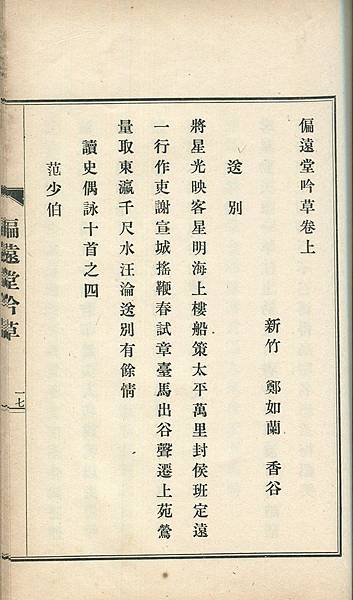 偏遠堂吟草卷上
新竹 鄭如蘭 香谷
送別
將星光映客星明海上樓船策太平萬里封侯班定遠
一行作吏謝宣城搖鞭春試章臺馬出谷聲遷上苑鶯
量取東瀛千尺水汪淪送別有餘情
讀史偶詠十首之四
范少伯
偏遠堂吟草
一七